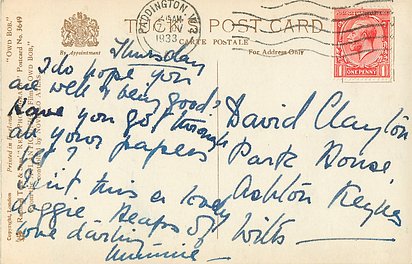 "OWD BOB."
Postcard No. 3649
By Appointment
POST CARD
CARTE POSTALE
For Address Only
PADDINGTON, W.2
1933
ONE PENNY
Copyright, London
Thursday
I do hope you
are well & being good?
Have you got through
all your papers
yet?
Isn't this a lovely
doggie. Heaps of
love darling
Mummie -
David Clayton
Park House
Ashton Keynes
Wilts